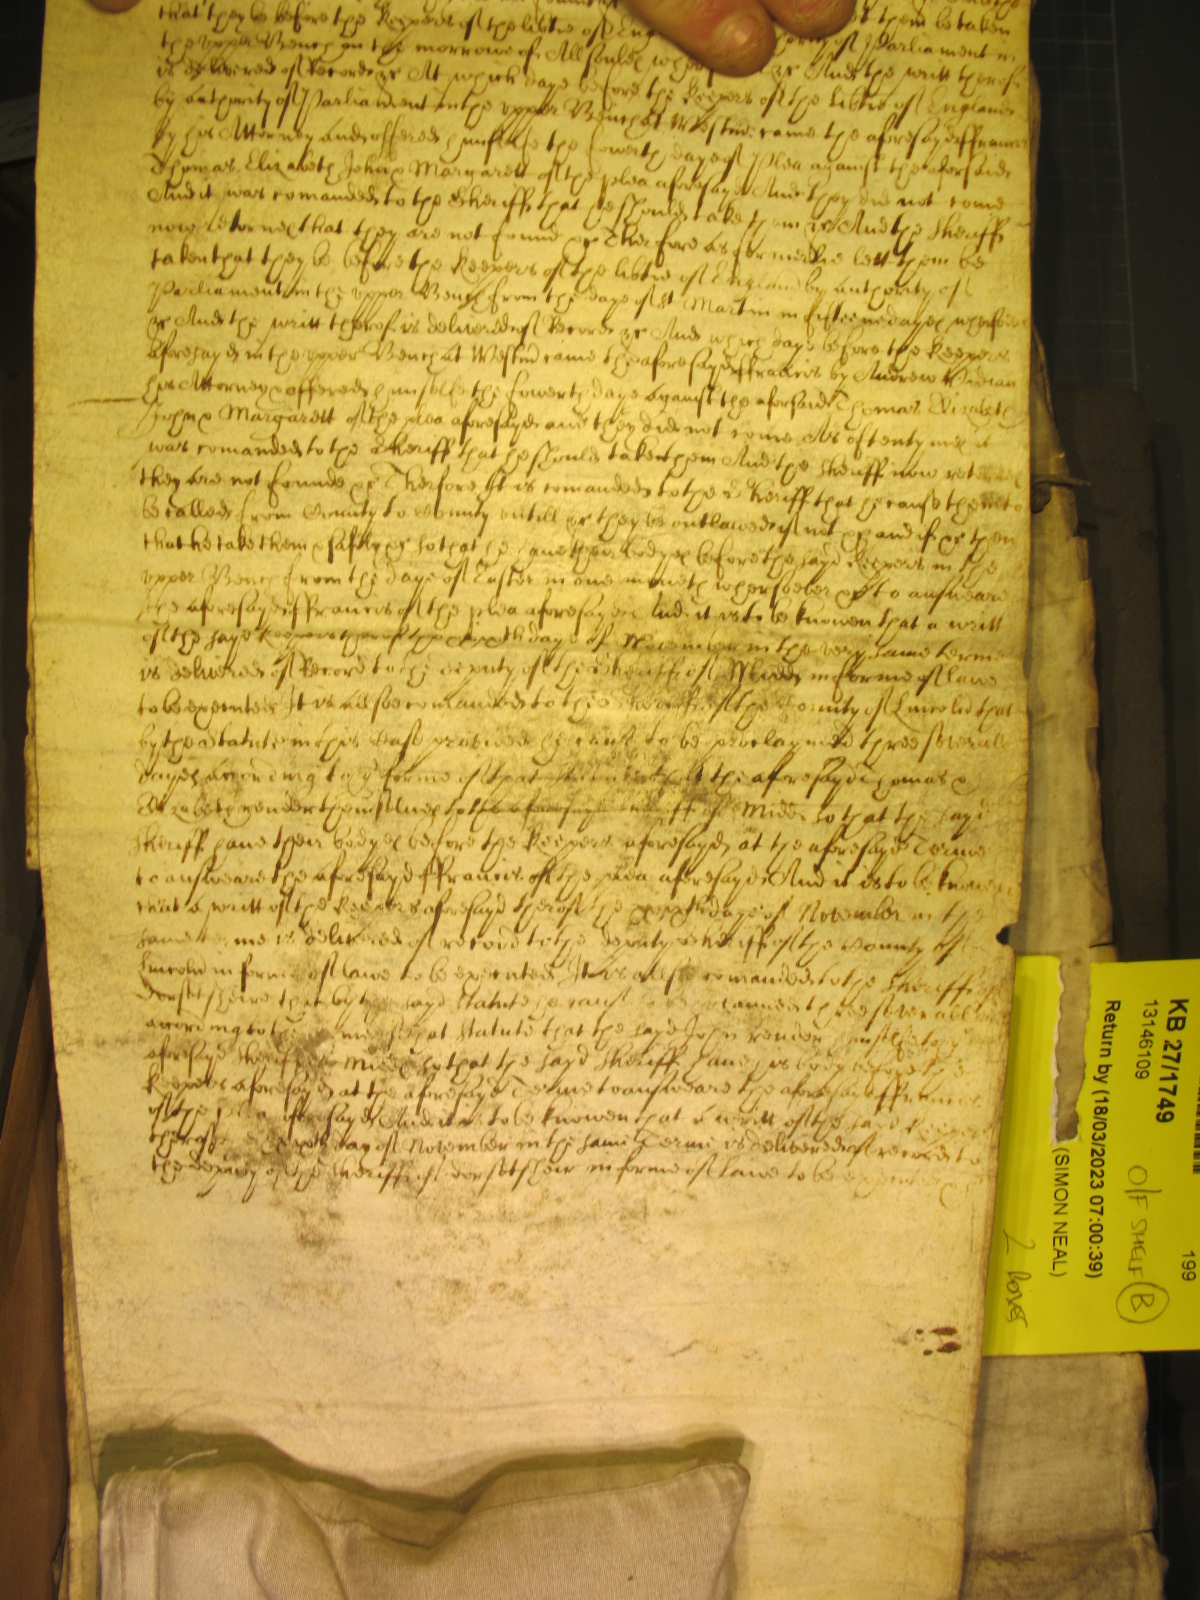 that they be before the Keepers of the libtie of Eng them be taken
the upper Bench on the morrowe of All soules wher &c And the writt therof
is delivered of Record &c At which daye before the Keepers of the libtie of England
by authority of Parliament in the upper Bench at Westm came the aforesayd ffrancis
by his Attorney and offered himselfe the fowerth daye of Plea against the aforsaid
Thomas Elizabeth John & Margarett of the plea aforesayd And they did not come
And it was comanded to the Sheriffe that he should take them &c And the Sheriffe
now retorneth that they are not found &c Therfore as formerlie lett them be
taken that they be before the Keepers of the libtie of England by authority of
Parliament in the upper Bench from the daye of St Martin in fifteene dayes whersoever
&c And the writt therof is delivered of Record &c And which daye before the Keepers
aforesayd in the upper Bench at Westm came the aforesayd ffrancis by Andrew
his Attorney & offered himselfe the fowerth daye against the aforsaid Thomas Elizabeth
John & Margarett of the plea aforesayd and they did not come As oftentymes it
was comanded to the Sheriff that he should take them And the Sheriff now
they are not founde &c Therfore It is comanded to the Sheriff that he cause them to
be called from County to County untill &c they be outlawed if not &c and if &c then
that he take them & safely &c so that he have their bodyes before the sayd Keepers in the
upper Bench from the daye of Easter in one moneth whersoever &c to answeare
the aforesayd ffrancis of the plea aforesayd And it is to be knowen that a writt
of the sayd Keepers therof the daye of November in the very same terme
is delivered of Record to the deputy of the Sheriffe of Midds in forme of lawe
to be executed It is allsoe comanded to the Sheriffe of the County of Lincoln that
by the Statute in this Case provided he cause to be proclaymed three severall
dayes according to ye forme of that Statute that the aforesayd Thomas &
Elizabeth render themselves to the aforesayd Sheriff of Midds so that the sayd
Sheriff have their bodyes before the Keepers aforesayd at the aforesayd Terme
to answeare the aforesayd ffrancis of the plea aforesayd And it is to be knowen
that a writt of the Keepers aforesayd therof the daye of November in the
same terme is delivered of record to the deputy Sheriff of the County of
Lincoln in forme of lawe to be executed It is allsoe comanded to the Sheriff of
Dorsetsheire that by the sayd Statute he cause to be proclaimed three severall
according to the forme of that Statute that the sayd John render himselfe to the
aforesayd Sheriff of Midds so that the sayd Sheriff have his body before the
Keepers aforesayd at the aforesayd Terme to answeare the aforesayd ffrancis
of the plea aforesayd And it is to be knowen that a writt of the sayd Keepers
therof the day of November in the same Terme is delivered of record to
the deputy of the Sheriff of dorsetsheir in forme of lawe to be executed &c
KB 27/1749
199
13146109
Return by (18/03/2023 07:00:39)
(SIMON NEAL)
O/F SHELF B
2 boxes